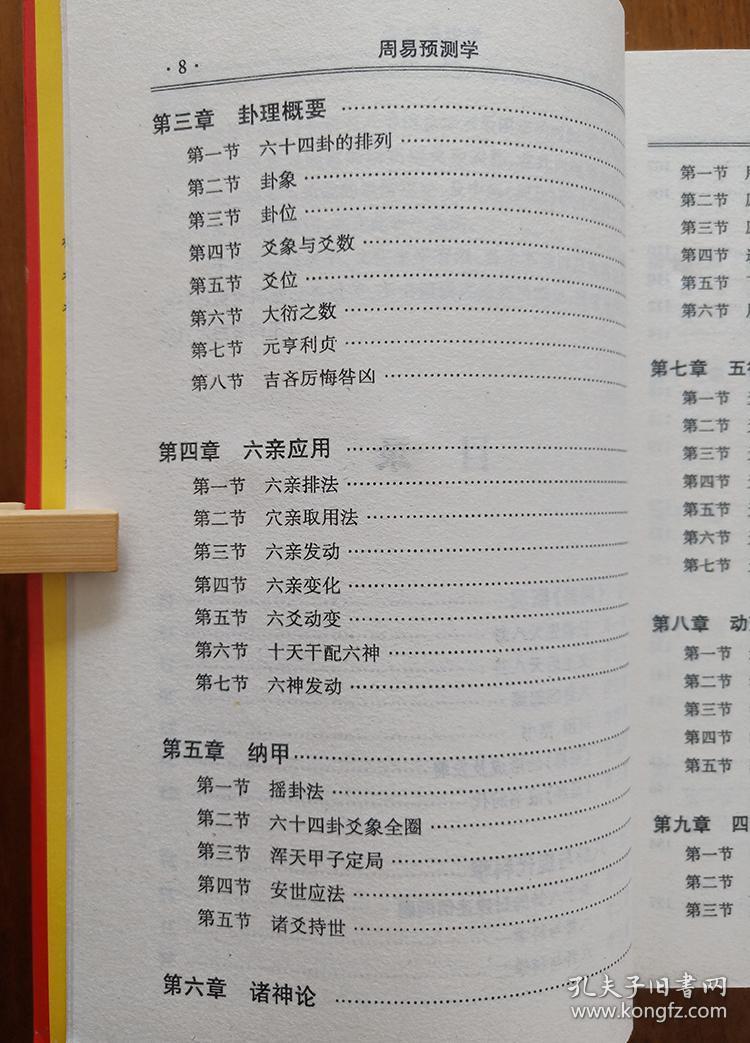 ·8·
周易预测学
第三章 卦理概要
第一节 六十四卦的排列
第二节 卦象
第三节 卦位
第四节 爻象与爻数
第五节 爻位
第六节 大衍之数
第七节 元亨利贞
第八节 吉吝厉悔咎凶
第四章 六亲应用
第一节 六亲排法
第二节 穴亲取用法
第三节 六亲发动
第四节 六亲变化
第五节 六爻动变
第六节 十天干配六神
第七节 六神发动
第五章 纳甲
第一节 摇卦法
第二节 六十四卦爻象全圈
第三节 浑天甲子定局
第四节 安世应法
第五节 诸爻持世
第六章 诸神论
第一节
第二节
第三节
第四节
第五节
第六节
第七章 五
第一节
第二节
第三节
第四节
第五节
第六节
第七节
第八章 动
第一节
第二节
第三节
第四节
第五节
第九章 四
第一节
第二节
第三节
孔夫子旧书网
www.kongfz.com